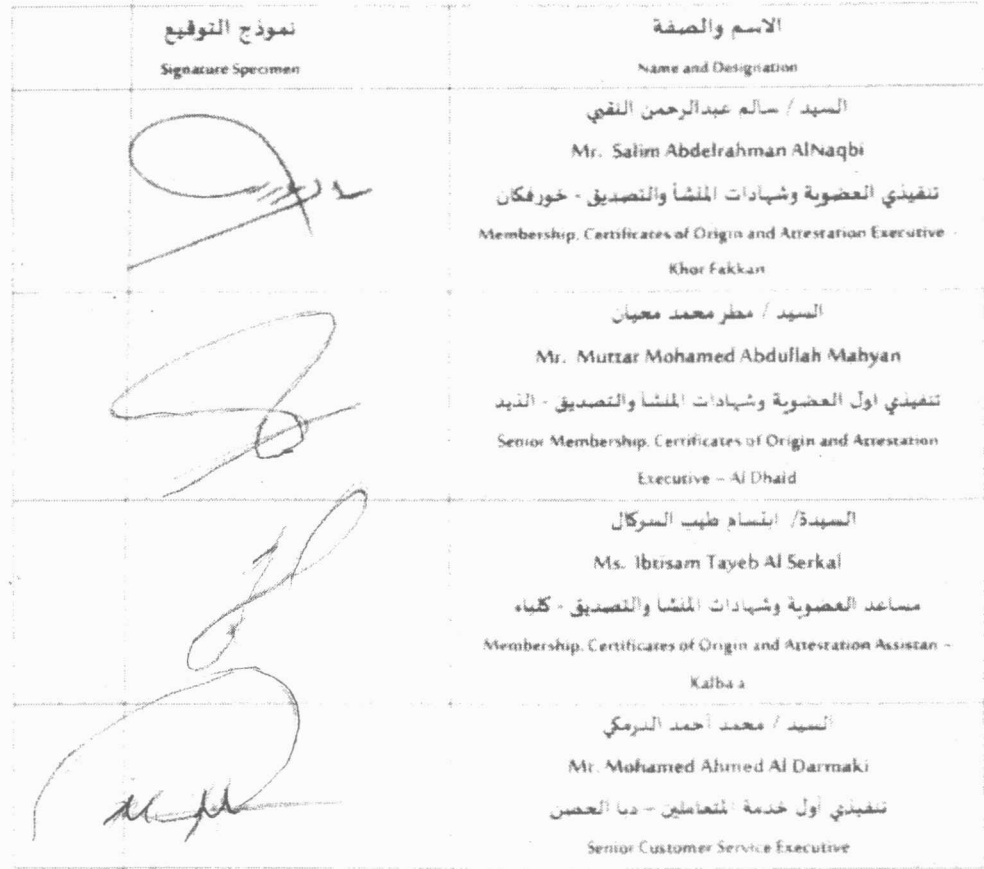 الاسم والصفة
Name and Designation
نموذج التوقيع
Signature Specimen
السيد / سالم عبدالرحمن النقبي
Mr. Salim Abdelrahman AlNaqbi
تنفيذي العضوية وشهادات المنشأ والتصديق - خورفكان
Membership, Certificates of Origin and Attestation Executive -
Khor Fakkan
السيد / مطر محمد محيان
Mr. Muttar Mohamed Abdullah Mahyan
تنفيذي اول العضوية وشهادات المنشأ والتصديق - الذيد
Senior Membership, Certificates of Origin and Attestation
Executive – Al Dhaid
السيدة/ ابتسام طيب السركال
Ms. Ibtisam Tayeb Al Serkal
مساعد العضوية وشهادات المنشا والتصديق - كلباء
Membership, Certificates of Origin and Attestation Assistan –
Kalba a
السيد / محمد أحمد الدرمكي
Mr. Mohamed Ahmed Al Darmaki
تنفيذي أول خدمة المتعاملين – دبا الحصن
Senior Customer Service Executive